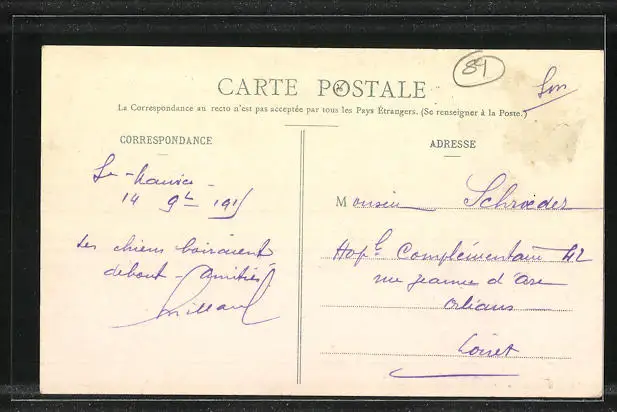 84
CARTE POSTALE
La Correspondance au recto n'est pas acceptée par tous les Pays Étrangers. (Se renseigner à la Poste.)
CORRESPONDANCE
ADRESSE
14 9bre 1915
Monsieur Schrœder
Les chiens boiraient
debout - Amitiés
Hopl Complémentaire 42
rue Jeanne d'Arc
Orléans
Loiret